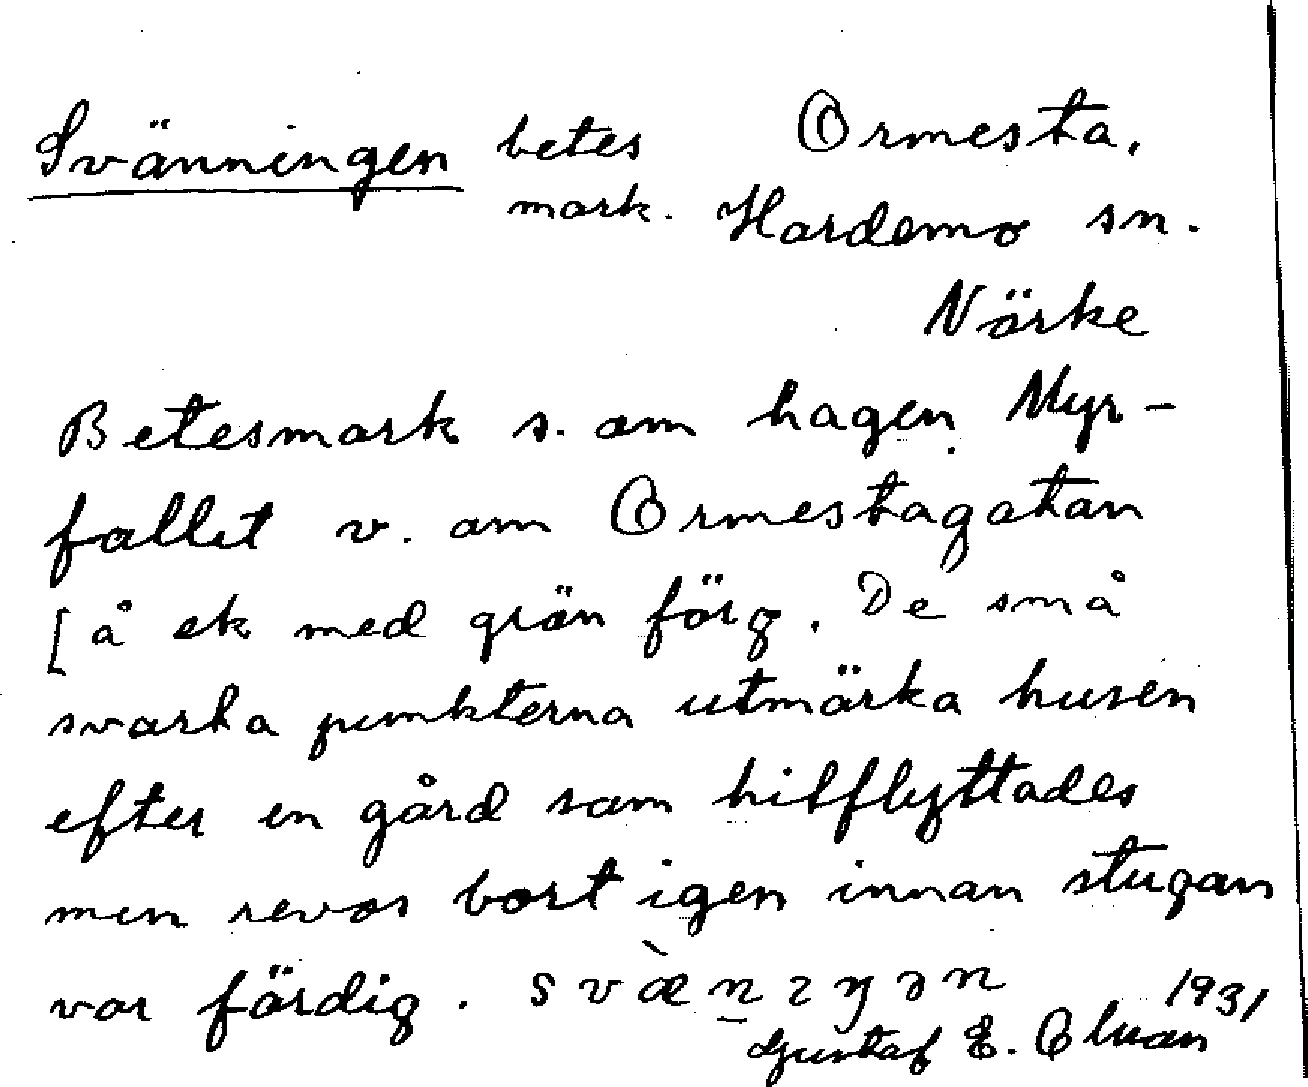 Svänningen betes Ormesta,
mark. Hardemo sn.
Närke
Betesmark s. om hagen Myr-
fallet v. om Ormestagatan
[å ek med grön färg. De små
svarta punkterna utmärka husen
efter en gård som hitflyttades
men revos bort igen innan stugan
var färdig. 1931
Gustaf E.